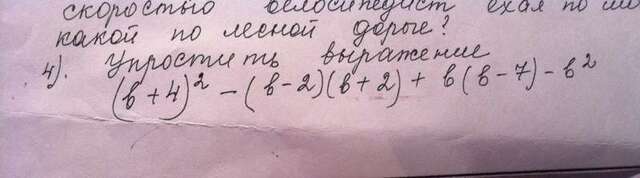 скоростью велосипедист ехал по
какой по лесной дороге?
4). Упростить выражение
(в+4)² - (в-2)(в+2) + в(в-7) - в²